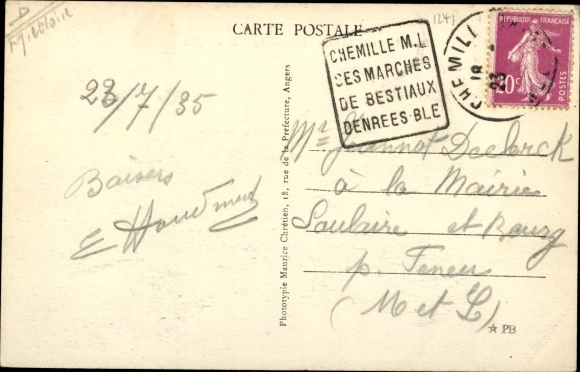 D
M et Loire
CARTE POSTALE
1241
REPUBLIQUE FRANÇAISE
20c
POSTES
CHEMILL
18
23
CHEMILLE M.L
SES MARCHES
DE BESTIAUX
DENREES-BLE
23/7/35
Baisers
Mr Jeannot Declerck
à la Mairie
Saulaire et Bourg
p. Feneu
(M et L)
Phototypie Maurice Chrétien, 18, rue de la Préfecture, Angers
PB